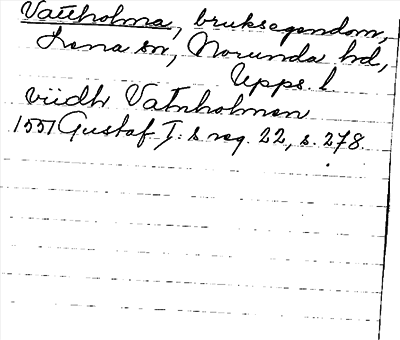 Vattholma, bruksegendom,
Lena sn, Norunda hd,
Upps. l
viidh Vatnholmen
1551 Gustaf I:s reg. 22, s. 278.